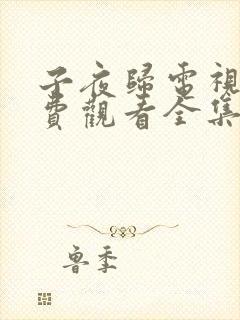 子夜歸電視
費觀看全集
魯季